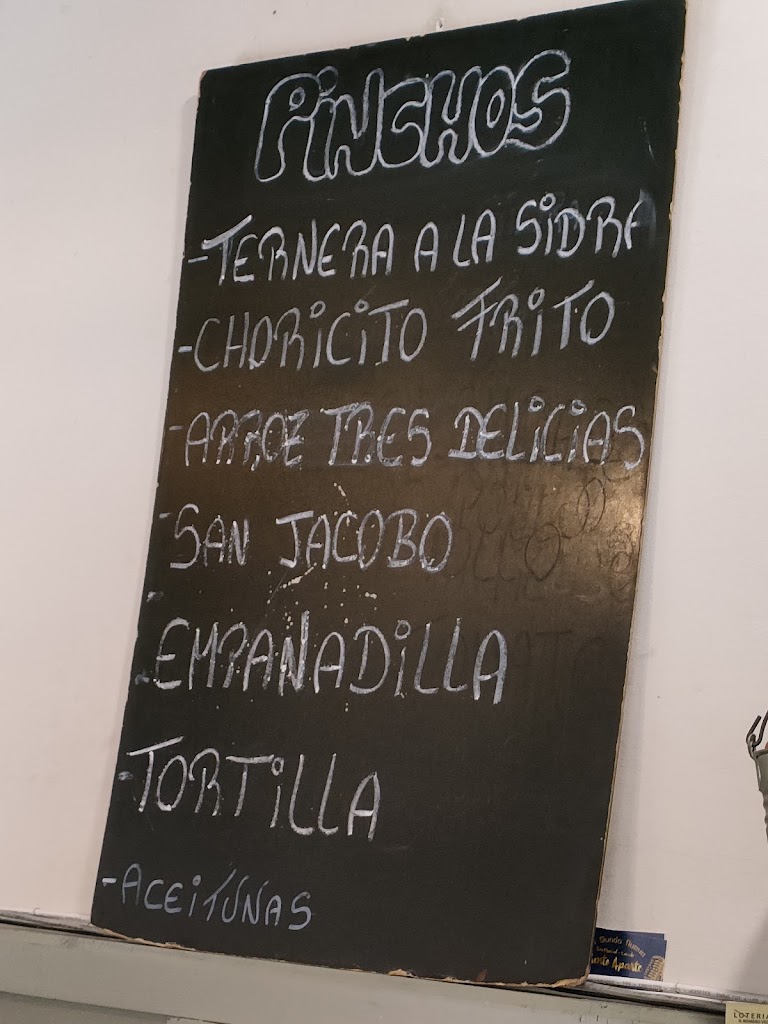 PiNCHOS
-TERNERA A LA SiDRA
-CHORiCiTO FRiTO
-ARROZ TRES DELiCiAS
-SAN JACOBO
-EMPANADiLLA
-TORTiLLA
-ACEiTUNAS
LOTERIA